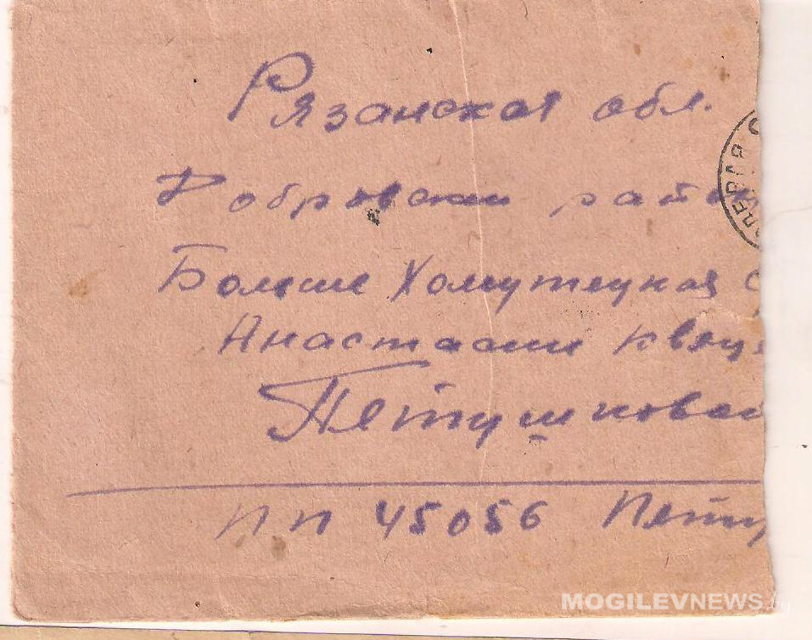 Рязанская обл.
Добровский
Больше Хомутецкая
Анастасии
Петушковой
ПП 45056 Пету
MOGILEVNEWS.